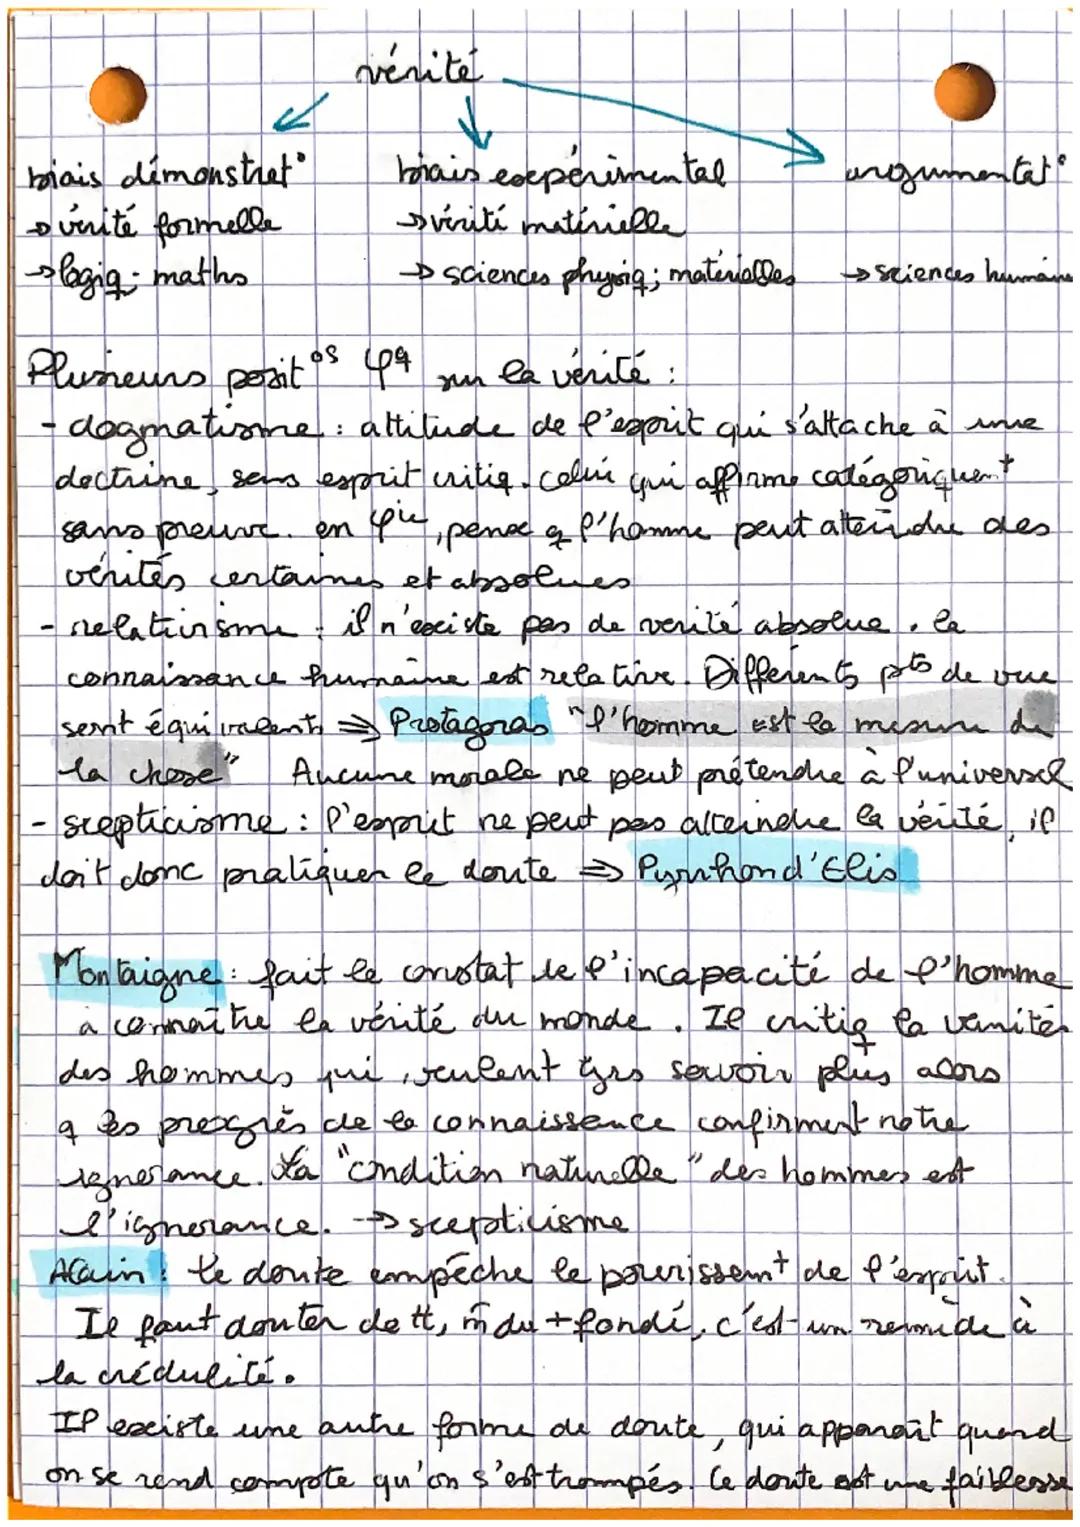 vérité
biais démonstrat° biais expérimental argumentat°
→ vérité formelle → vérité matérielle
→ logiq; maths → sciences physiq; matérielles → sciences humaine
Plusieurs posit°s φq sur la vérité :
- dogmatisme : attitude de l'esprit qui s'attache à une
doctrine, sans esprit critiq. Celui qui affirme catégoriquemt
sans preuve. en φie, pense q l'homme peut atteindre des
vérités certaines et absolues
- relativisme : il n'existe pas de verité absolue. la
connaissance humaine est relative. Différents pts de vue
sont équivalents ⇒ Protagoras "l'homme est la mesure de
la chose" Aucune morale ne peut prétendre à l'universel
- scepticisme : l'esprit ne peut pas atteindre la vérité, il
doit donc pratiquer le doute ⇒ Pyrrhon d'Elis
Montaigne : fait le constat de l'incapacité de l'homme
à connaître la vérité du monde. Il critiq la vanité
des hommes qui veulent tjrs savoir plus + alors
q les progrès de la connaissance confirment notre
ignorance. La "condition naturelle" des hommes est
l'ignorance. → scepticisme
Alain : le doute empêche le pourrissemt de l'esprit.
Il faut douter de tt, m̂ du + fondé, c'est un remède à
la crédulité.
Il existe une autre forme de doute, qui apparaît quand
on se rend compte qu'on s'est trompés. Ce doute est une faiblesse